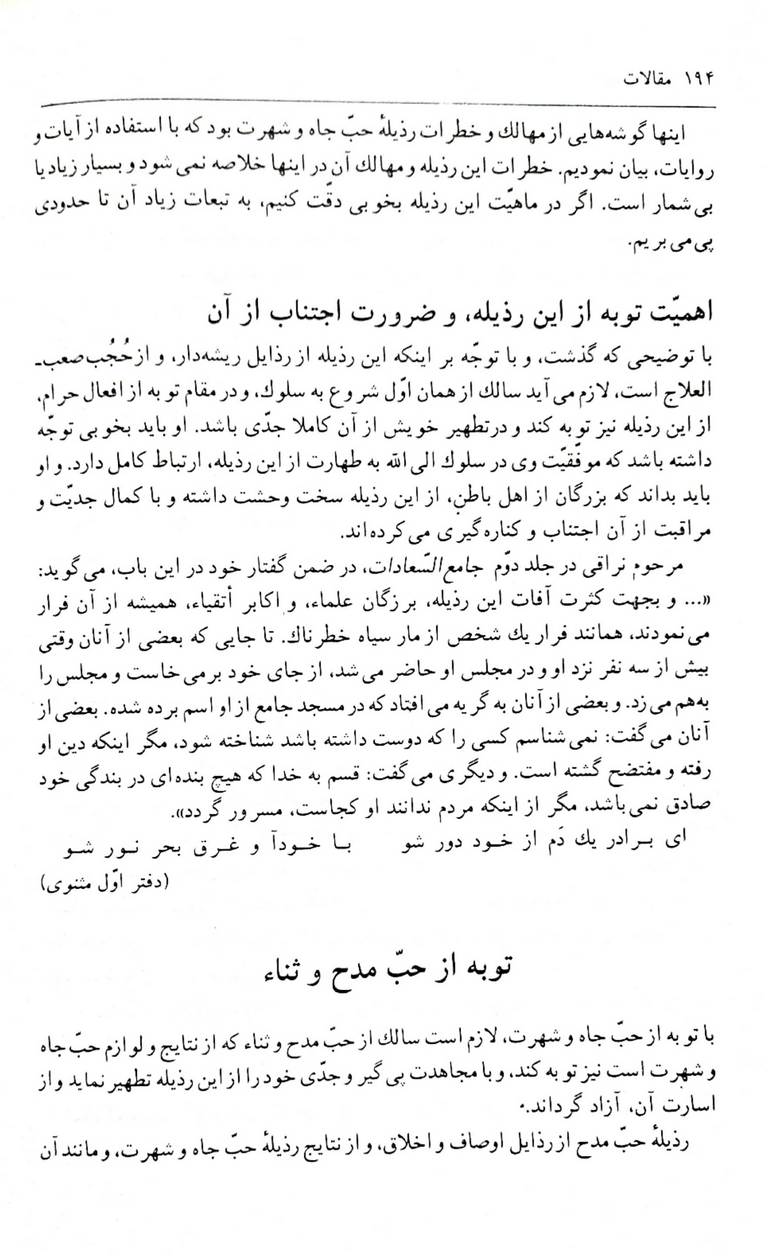 ۱۹۴ مقالات
اینها گوشه‌هایی از مهالك و خطرات رذیلهٔ حبّ جاه و شهرت بود که با استفاده از آیات و
روایات، بیان نمودیم. خطرات این رذیله و مهالك آن در اینها خلاصه نمی‌شود و بسیار زیاد یا
بی‌شمار است. اگر در ماهیّت این رذیله بخوبی دقّت کنیم، به تبعات زیاد آن تا حدودی
پی می‌بریم.
اهمیّت توبه از این رذیله، و ضرورت اجتناب از آن
با توضیحی که گذشت، و با توجّه بر اینکه این رذیله از رذایل ریشه‌دار، و از حُجُب صعب‌ـ
العلاج است، لازم می‌آید سالك از همان اوّل شروع به سلوك، و در مقام توبه از افعال حرام،
از این رذیله نیز توبه کند و درتطهیر خویش از آن کاملا جدّی باشد. او باید بخوبی توجّه
داشته باشد که موفّقیّت وی در سلوك الی الله به طهارت از این رذیله، ارتباط کامل دارد. و او
باید بداند که بزرگان از اهل باطن، از این رذیله سخت وحشت داشته و با کمال جدیّت و
مراقبت از آن اجتناب و کناره‌گیری می‌کرده‌اند.
مرحوم نراقی در جلد دوّم جامع‌السّعادات، در ضمن گفتار خود در این باب، می‌گوید:
«... و بجهت کثرت آفات این رذیله، بزرگان علماء، و اکابر أتقیاء، همیشه از آن فرار
می‌نمودند، همانند فرار یك شخص از مار سیاه خطرناك. تا جایی که بعضی از آنان وقتی
بیش از سه نفر نزد او و در مجلس او حاضر می‌شد، از جای خود برمی‌خاست و مجلس را
به‌هم می‌زد. و بعضی از آنان به گریه می‌افتاد که در مسجد جامع از او اسم برده شده. بعضی از
آنان می‌گفت: نمی‌شناسم کسی را که دوست داشته باشد شناخته شود، مگر اینکه دین او
رفته و مفتضح گشته است. و دیگری می‌گفت: قسم به خدا که هیچ بنده‌ای در بندگی خود
صادق نمی‌باشد، مگر از اینکه مردم ندانند او کجاست، مسرور گردد».
ای بـرادر یك دَم از خـود دور شو بـا خـودآ و غـرق بحر نـور شـو
(دفتر اوّل مثنوی)
توبه از حبّ مدح و ثناء
با توبه از حبّ جاه و شهرت، لازم است سالك از حبّ مدح و ثناء که از نتایج و لوازم حبّ جاه
و شهرت است نیز توبه کند، و با مجاهدت پی‌گیر و جدّی خود را از این رذیله تطهیر نماید و از
اسارت آن، آزاد گرداند.
رذیلهٔ حبّ مدح از رذایل اوصاف و اخلاق، و از نتایج رذیلهٔ حبّ جاه و شهرت، و مانند آن